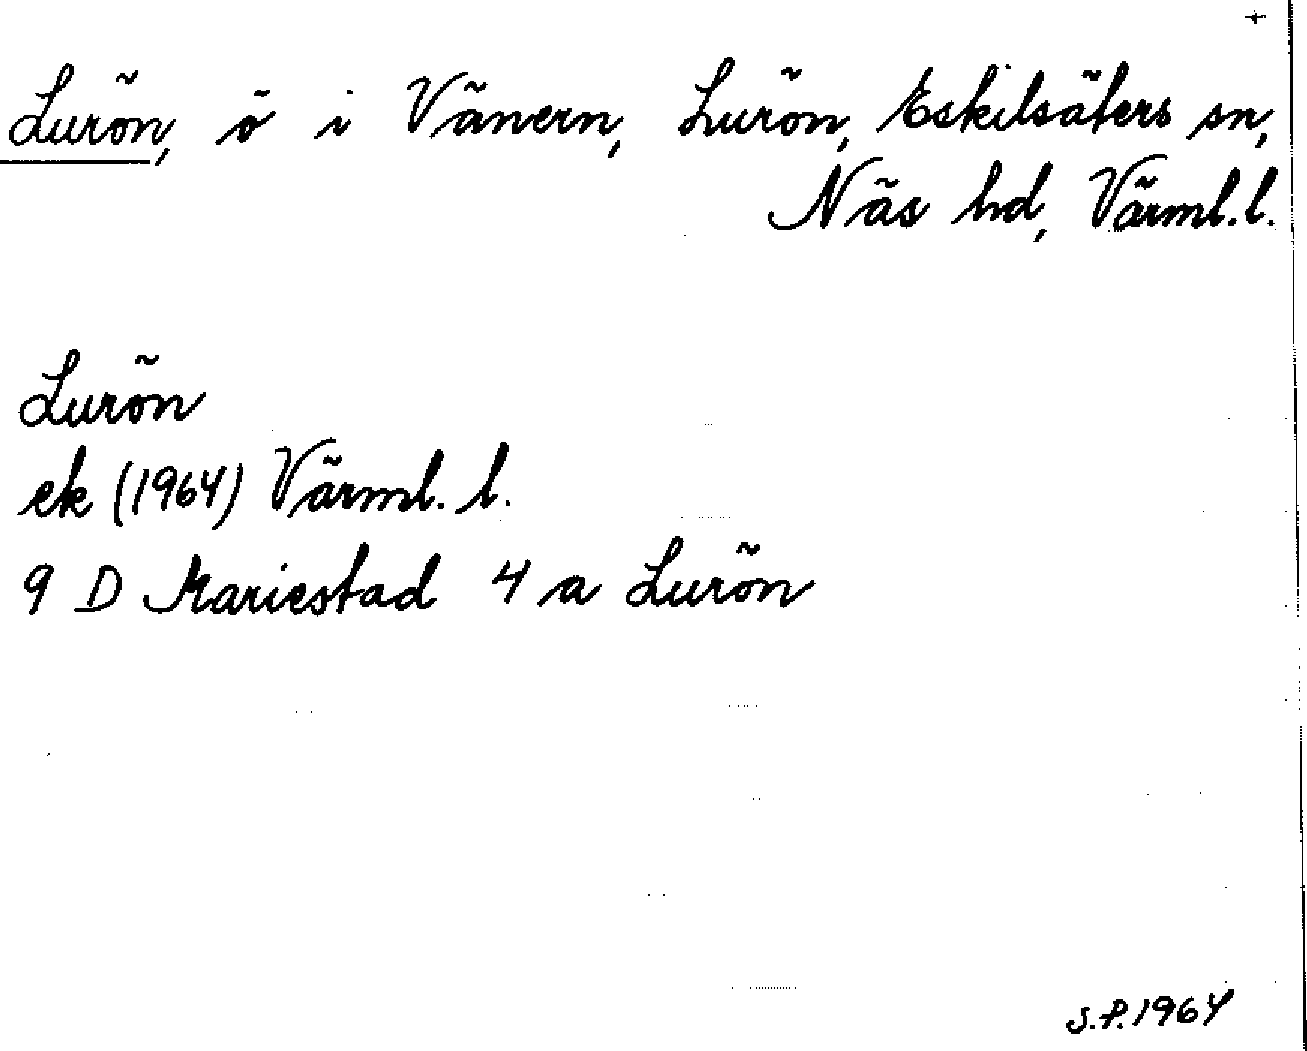 +
Lurön, ö i Vänern, Lurön, Eskilsäters sn,
Näs hd, Värml.l.
Lurön
ek (1964) Värml. l.
9 D Mariestad 4 a Lurön
S.P. 1964